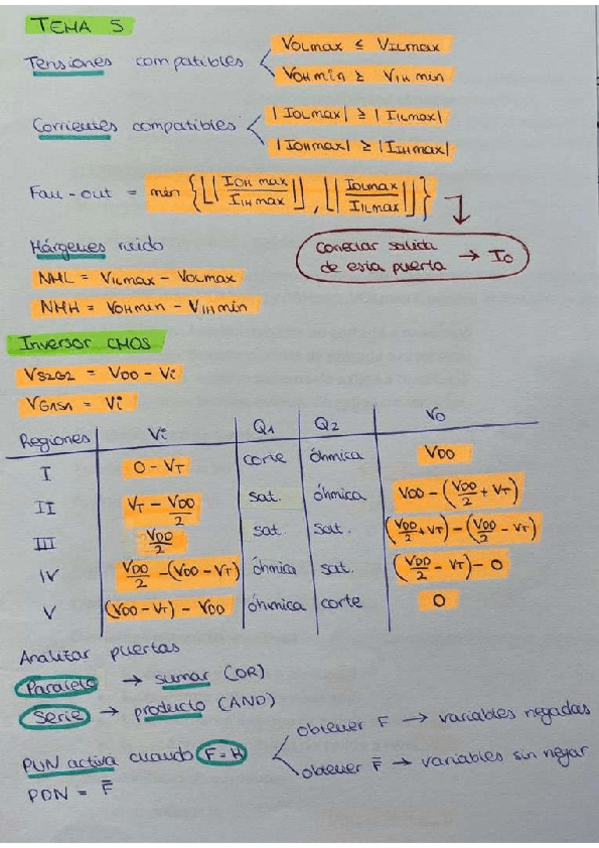 TEMA 5
Tensiones compatibles
VOLmax ≤ VILmax
VOHmin ≥ VIHmin
Corrientes compatibles
|IOLmax| ≥ |IILmax|
|IOHmax| ≥ |IIHmax|
Fau-out = min {⌊|IOH max / IIH max|⌋, ⌊|IOLmax / IILmax|⌋}
Conectar salida
de esta puerta → IO
Márgenes ruido
NML = VILmax - VOLmax
NMH = VOHmin - VIHmin
Inversor CMOS
VS2G2 = VDD - Vi
VG1S1 = Vi
Regiones Vi Q1 Q2 VO
I 0 - VT corte óhmica VDD
II VT - VDD/2 sat. óhmica VDD - (VDD/2 + VT)
III VDD/2 sat. sat. (VDD/2 + VT) - (VDD/2 - VT)
IV VDD/2 - (VDD - VT) óhmica sat. (VDD/2 - VT) - 0
V (VDD - VT) - VDD óhmica corte 0
Analizar puertas
Paralelo → sumar (OR)
Serie → producto (AND)
PUN activa cuando F = H
obtener F → variables negadas
obtener F̄ → variables sin negar
PDN = F̄